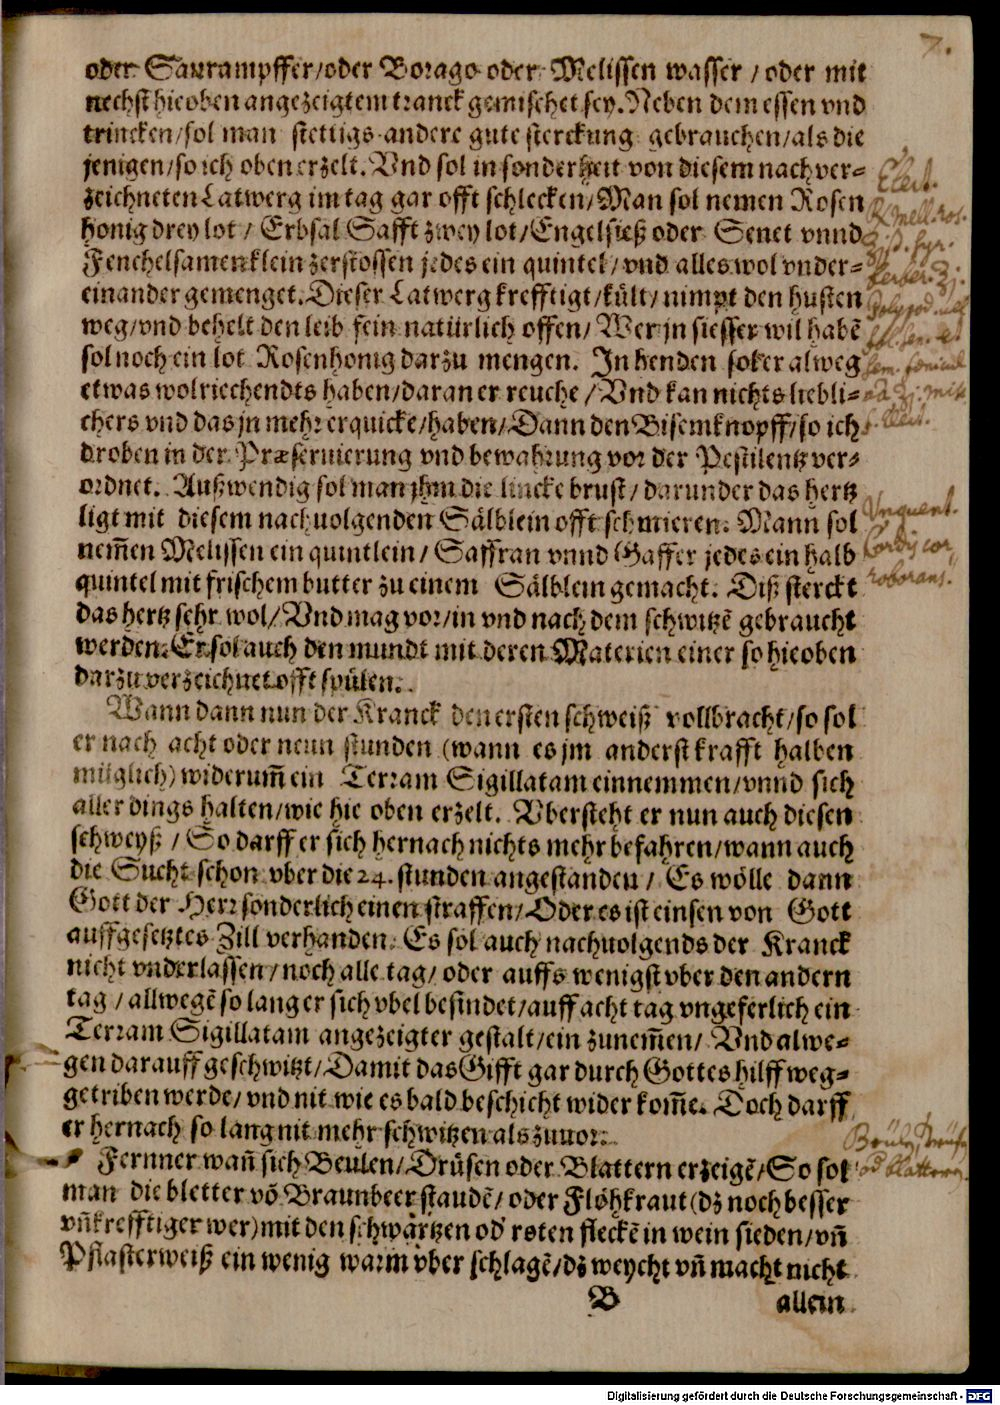 7.
oder Saurampffer/oder Borago oder Melissen wasser / oder mit
nechst hieoben angezeigtem tranck gemischet sey. Neben dem essen vnd
trincken/sol man stettigs andere gute sterckung gebrauchen/als die
jenigen/so ich oben erzelt. Vnd sol in sonderheit von diesem nachver-
zeichneten Latwerg im tag gar offt schlecken/Man sol nemen Rosen
honig drey lot / Erbsal Safft zwey lot/Engelsieß oder Senet vnnd
Fenchelsamen klein zerstossen jedes ein quintel/ vnd alles wol vnder-
einander gemenget. Dieser Latwerg krefftigt/kült/ nimpt den husten
weg/vnd behelt den leib fein natürlich offen/ Wer jn siesser wil habē
sol noch ein lot Rosenhonig darzu mengen. In henden sol er alweg
etwas wolriechendts haben/daran er reuche / Vnd kan nichts liebli-
chers vnd das jn mehr erquicke/haben/Dann den Bisemknopff/so ich
droben in der Præseruierung vnd bewahrung vor der Pestilentz ver-
ordnet. Außwendig sol man jhm die lincke brust/ darunder das hertz
ligt mit diesem nachuolgenden Sälblein offt schmieren. Mann sol
nem̄en Melissen ein quintlein/ Saffran vnnd Gaffer jedes ein halb
quintel mit frischem butter zu einem Sälblein gemacht. Diß sterckt
das hertz sehr wol/ Vnd mag vor/in vnd nach dem schwitzē gebraucht
werden. Er sol auch den mundt mit deren Materien einer so hieoben
darzu verzeichnet offt spülen.
Wann dann nun der Kranck den ersten schweiß vollbracht/so sol
er nach acht oder neun stunden (wann es jm anderst krafft halben
müglich) widerum̄ ein Terram Sigillatam einnemmen/vnnd sich
aller dings halten/wie hie oben erzelt. Vbersteht er nun auch diesen
schweyß / So darff er sich hernach nichts mehr befahren/wann auch
die Sucht schon vber die 24. stunden angestanden / Es wölle dann
Gott der Herr sonderlich einen straffen/Oder es ist einsen von Gott
auffgesetztes Zill verhanden. Es sol auch nachuolgends der Kranck
nicht vnderlassen/noch alle tag/ oder auffs wenigst vber den andern
tag / allwegē so lang er sich vbel befindet/auff acht tag vngeferlich ein
Terram Sigillatam angezeigter gestalt/ein zunem̄en/ Vnd alwe-
gen darauff geschwitzt/Damit das Gifft gar durch Gottes hilff weg-
getriben werde/ vnd nit wie es bald beschicht wider kom̄e. Doch darff
er hernach so lang nit mehr schwitzen als zuuor.
Fernner wañ sich Beulen/Drüsen oder Blattern erzeigē/So sol
man die bletter vō Braunbeer staudē/ oder Flöhkraut (dz noch besser
vñ krefftiger wer) mit den schwärtzen od' roten fleckē in wein sieden/vñ
Pflasterweiß ein wenig warm vber schlagē/dz weycht vñ macht nicht
B
allein
Elect.
Unguent.
Cordis cor-
roborans.
Digitalisierung gefördert durch die Deutsche Forschungsgemeinschaft - DFG